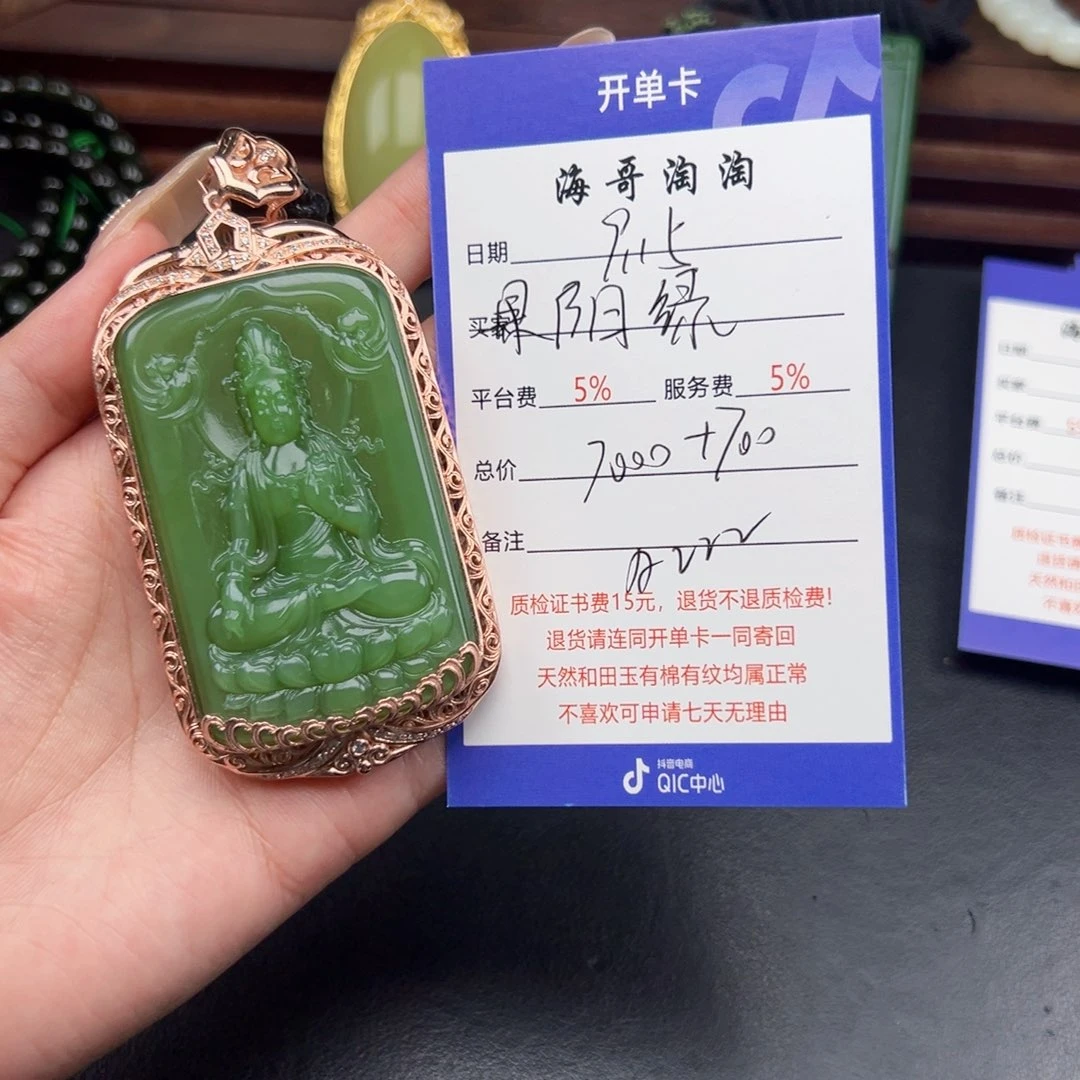 开单卡
海哥淘淘
日期 9.15
买家 阴绿
平台费 5% 服务费 5%
总价 7000+700
备注
质检证书费15元,退货不退质检费!
退货请连同开单卡一同寄回
天然和田玉有棉有纹均属正常
不喜欢可申请七天无理由
抖音电商
QIC中心
日期
平台费
总价
备注